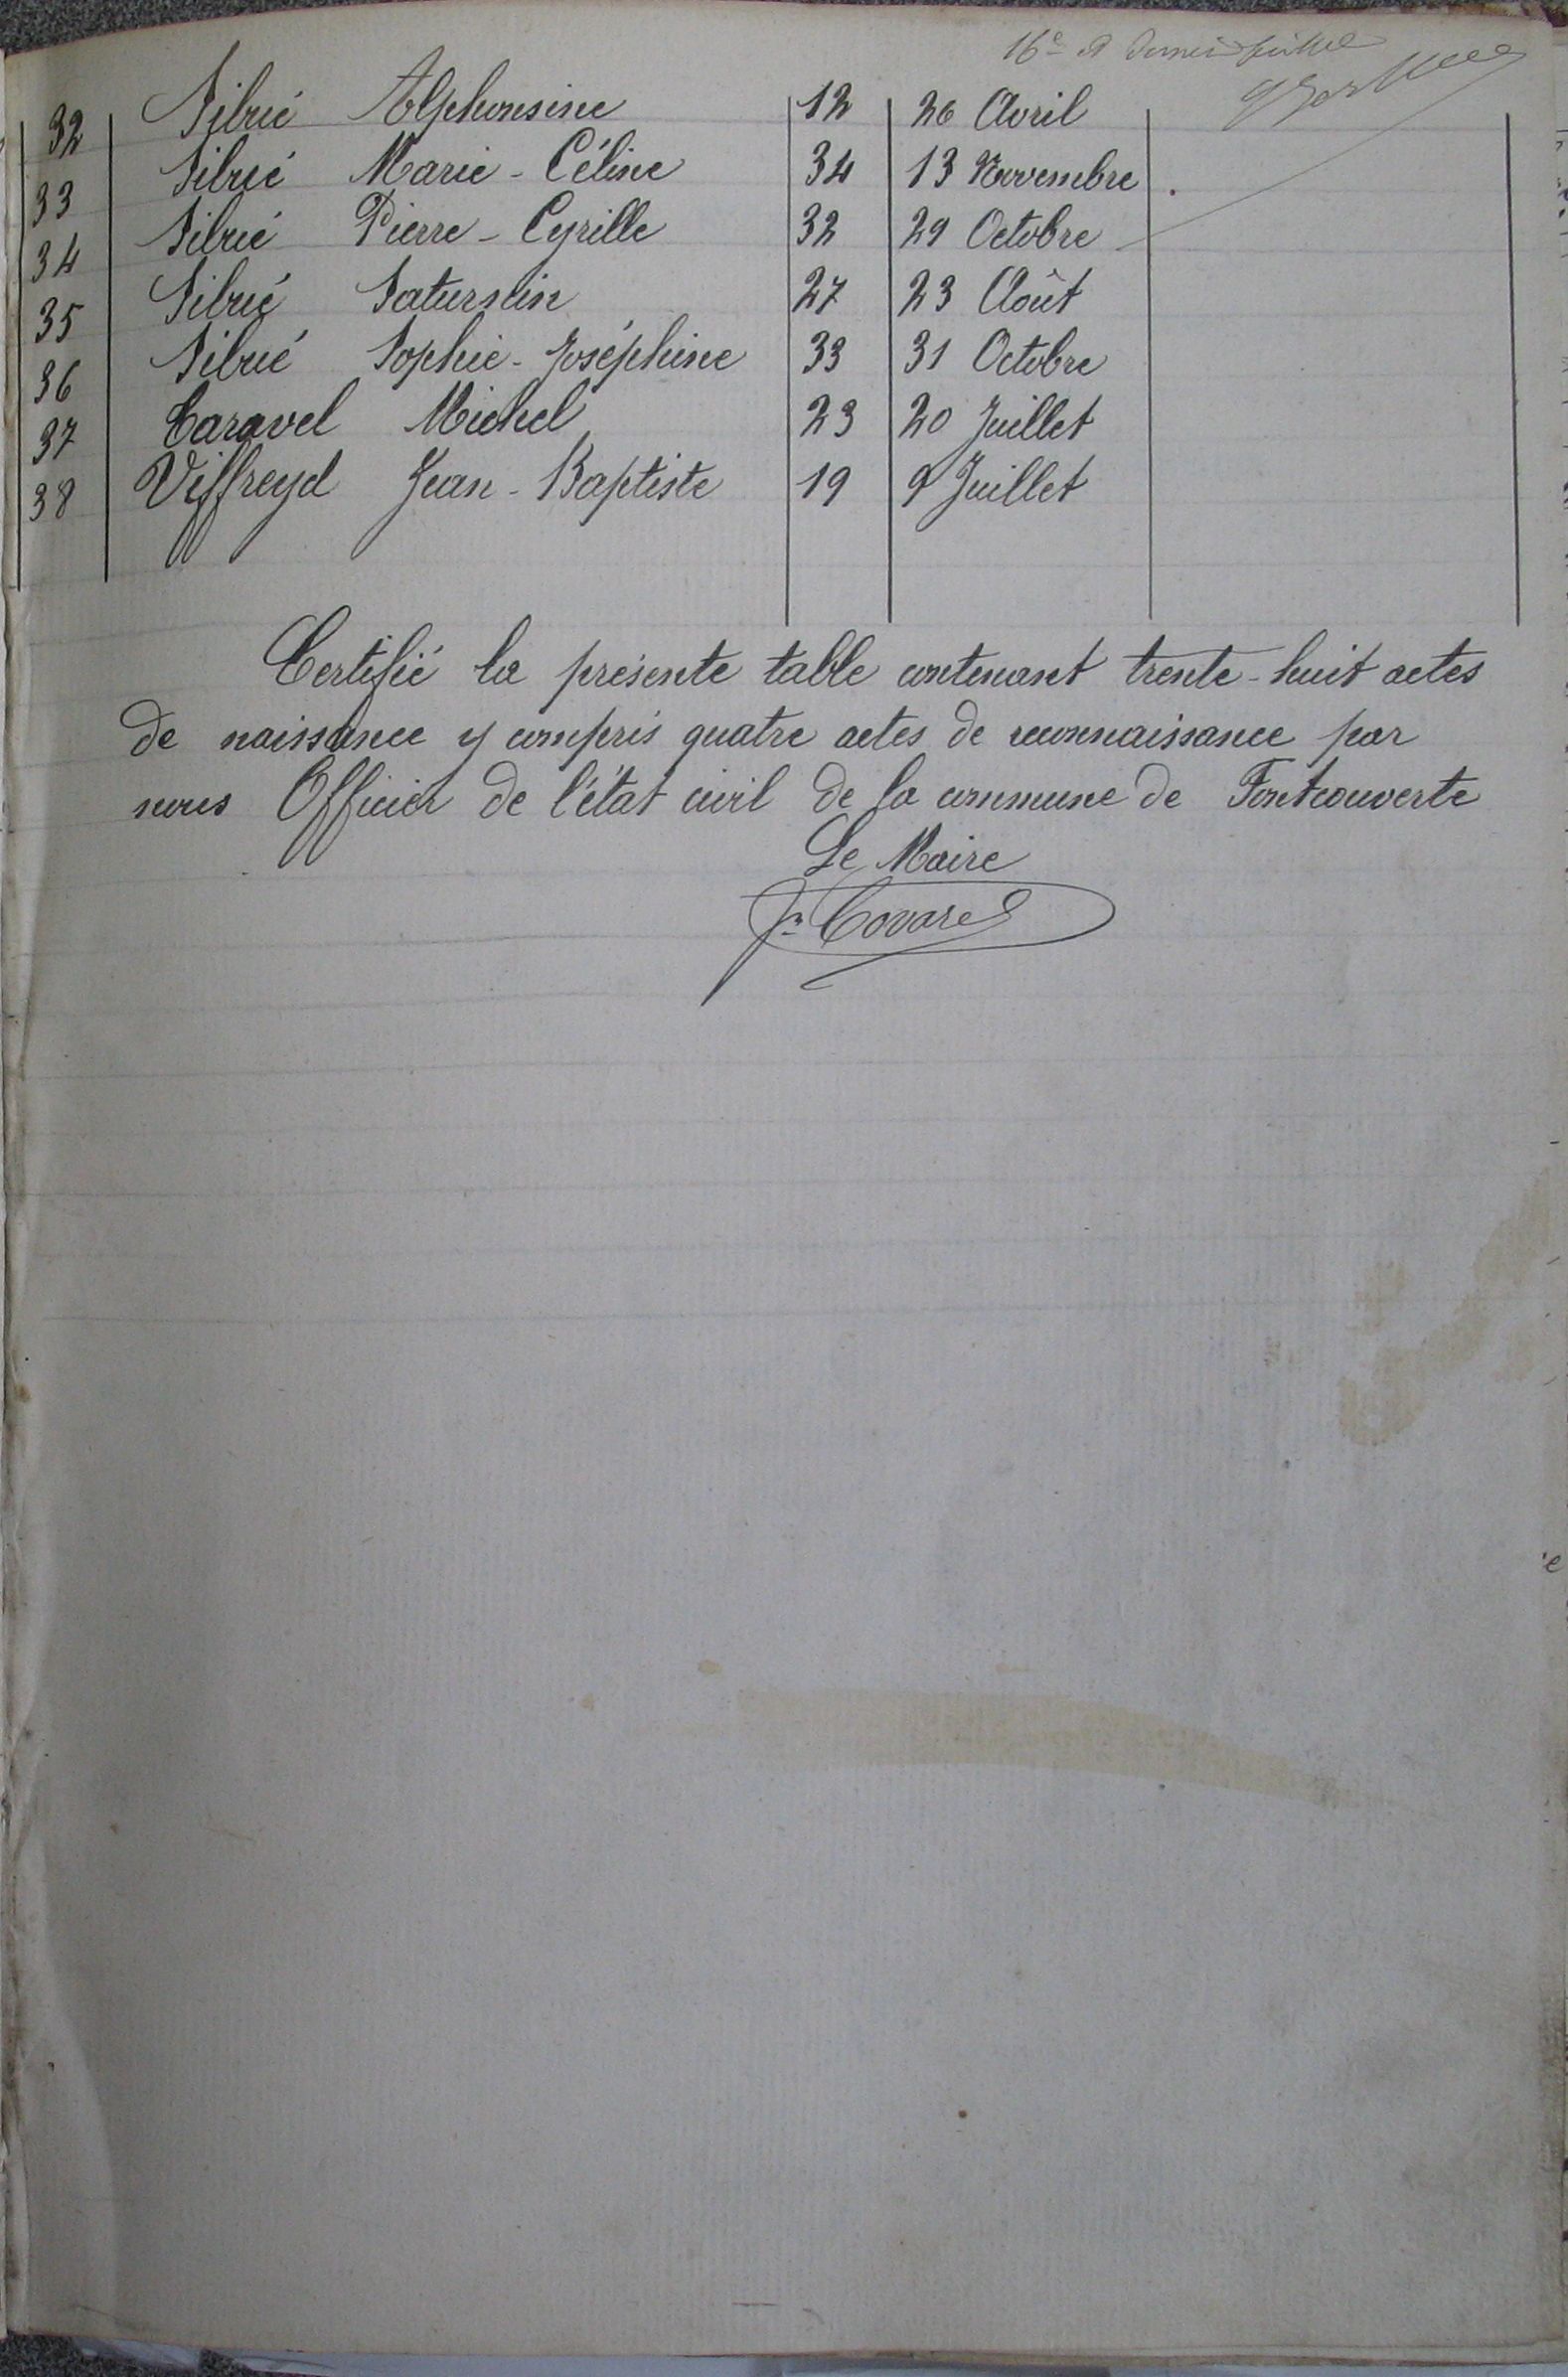 16e et dernier feuillet
32 Sibué Alphonsine 12 26 Avril
33 Sibué Marie - Céline 34 13 Novembre
34 Sibué Pierre - Cyrille 32 29 Octobre
35 Sibué Saturnin 27 23 Août
36 Sibué Sophie - Joséphine 33 31 Octobre
37 Taravel Michel 23 20 Juillet
38 Viffreyd Jean - Baptiste 19 9 Juillet
Certifié la présente table contenant trente-huit actes
de naissance y compris quatre actes de reconnaissance par
nous Officier de l'état civil de la commune de Fontcouverte
Le Maire
Covarel